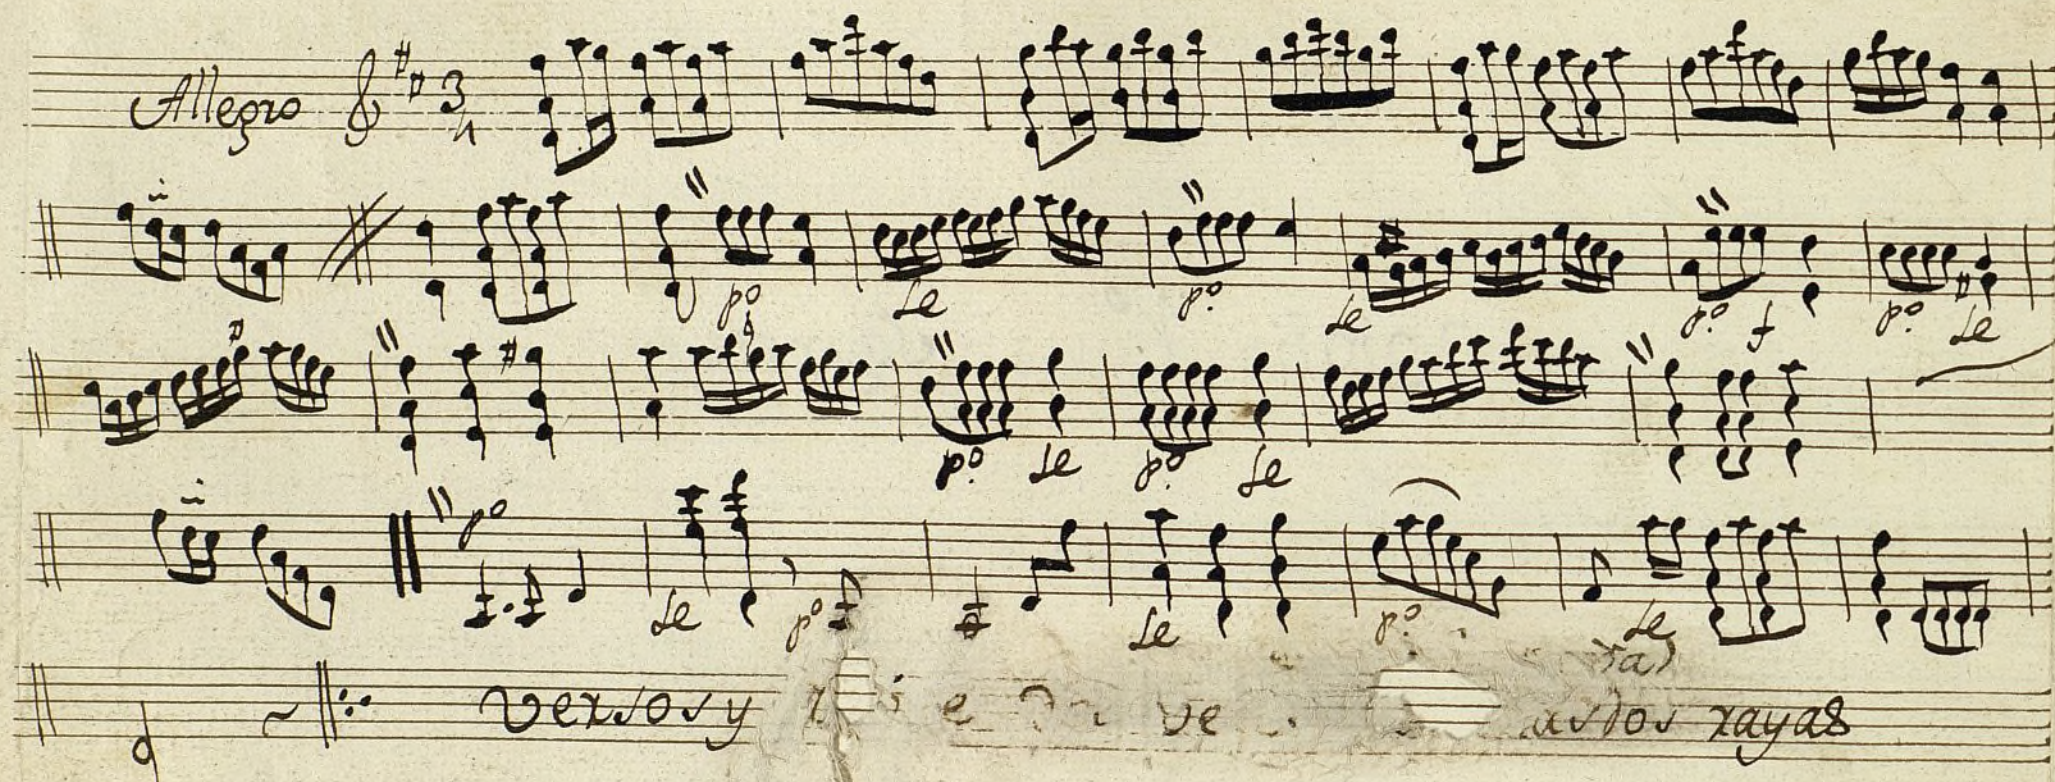 Allegro 3 4
po Le po Le po f po Le
po Le po Le
po Le po Le po Le
versos y e ve as dos rayas